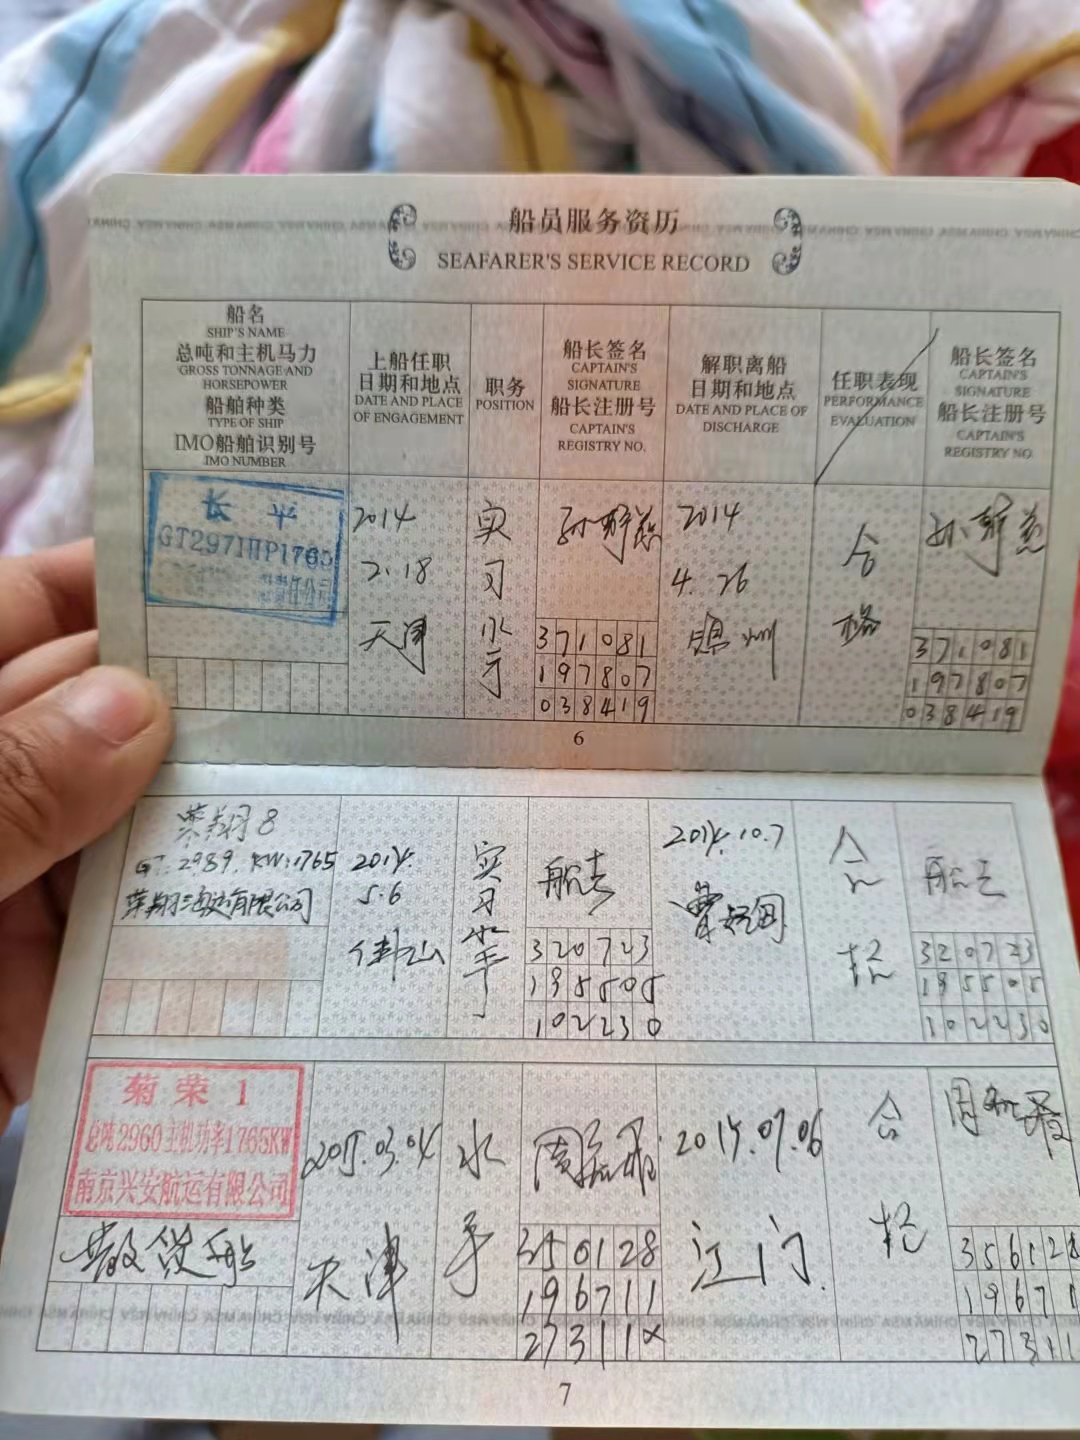 船员服务资历
SEAFARER'S SERVICE RECORD
船名
SHIP'S NAME
总吨和主机马力
GROSS TONNAGE AND
HORSEPOWER
船舶种类
TYPE OF SHIP
IMO船舶识别号
IMO NUMBER
上船任职
日期和地点
DATE AND PLACE
OF ENGAGEMENT
职务
POSITION
船长签名
CAPTAIN'S
SIGNATURE
船长注册号
CAPTAIN'S
REGISTRY NO.
解职离船
日期和地点
DATE AND PLACE OF
DISCHARGE
任职表现
PERFORMANCE
EVALUATION
船长签名
CAPTAIN'S
SIGNATURE
船长注册号
CAPTAIN'S
REGISTRY NO.
长 平
GT2971HP1765
2014
2.18
天津
实
习
水
手
371081
197807
038419
2014
4.26
合
格
371081
197807
038419
6
荣翔8
GT:2989. KW:1765
荣翔海运有限公司
2014.
5.6
实
习
水
手
船长
320723
195505
102230
2014.10.7
合
格
船长
320723
195505
102230
菊荣1
总吨2960主机功率1765KW
南京兴安航运有限公司
散货船
2015.03.04
天津
水
手
350128
196711
27311X
2015.07.06
江门.
合
格
7